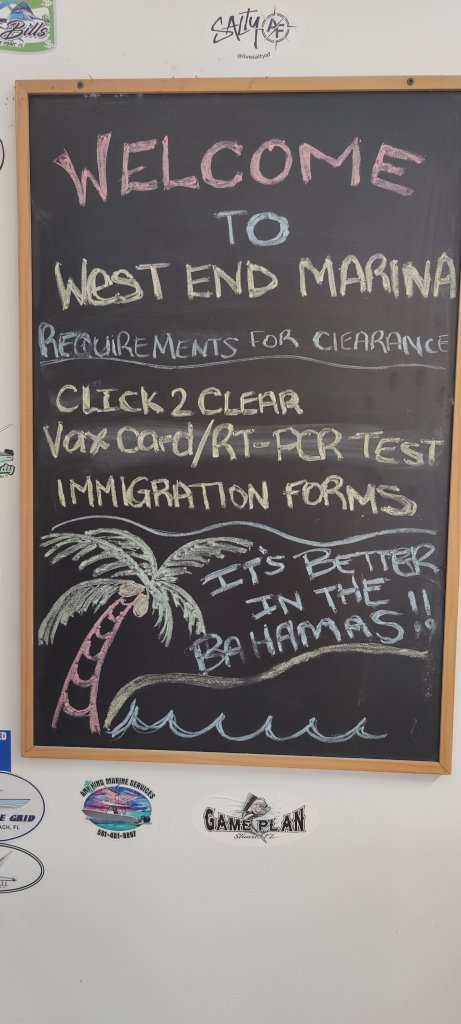 Bills
SALTY AF
@livesaltyaf
WELCOME
TO
WEST END MARINA
REQUIREMENTS FOR CLEARANCE
CLICK 2 CLEAR
Vax Card/RT-PCR TEST
IMMIGRATION FORMS
IT'S BETTER
IN THE
BAHAMAS!!
ANY KING MARINE SERVICES
561-451-9897
GAME PLAN
Stuart, FL
E GRID
ACH, FL